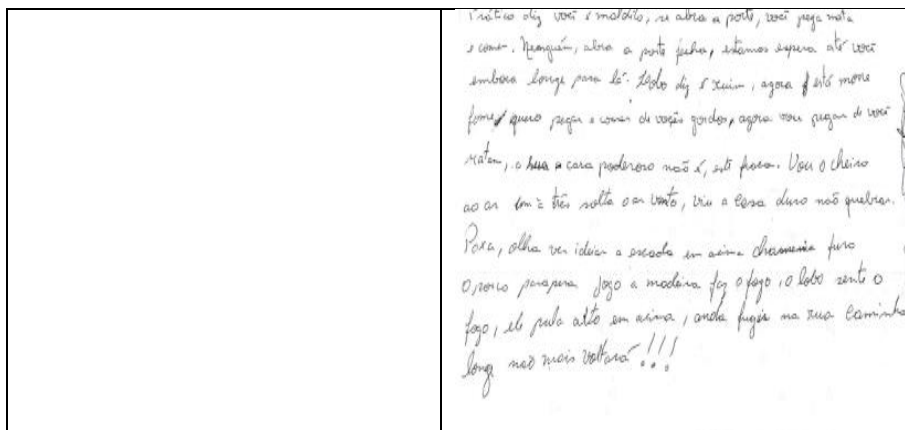 Prático diz você é maldito, se abra a porta, você pega mata
e comer. Ninguém, abra a porta fecha, estamos espera até você
embora longe para lá. Lobo diz é ruim, agora está morre
fome, quero pegar e comer de vocês gordos, agora vou pegar de você
matam, a sua casa poderoso não é, está fraca. Vou o cheiro
ao ar um a três solta o ar vento, viu a casa duro não quebrar.
Poxa, olha ver ideia a escada em acima chaminé furo
O porco prepara fogo a madeira faz o fogo, o lobo sente o
fogo, ele pula alto em acima, anda fugir na rua caminho
longe não mais voltará!!!